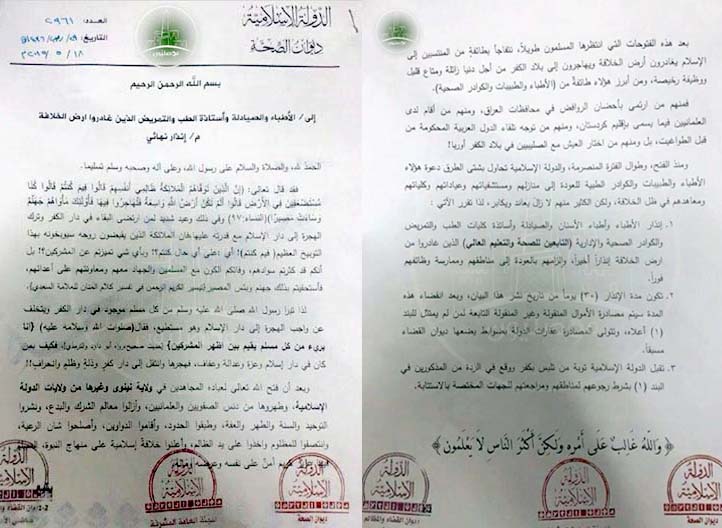 الدولة الإسلامية
ديوان الصحة
العدد: ٢٩٦١
التاريخ:
بسم الله الرحمن الرحيم
إلى/ الأطباء والصيادلة وأساتذة الطب والتمريض الذين غادروا ارض الخلافة
م/ إنذار نهائي
الحمد لله، والصلاة والسلام على رسول الله، وعلى آله وصحبه وسلم تسليما.
فقد قال تعالى: (إِنَّ الَّذِينَ تَوَفَّاهُمُ الْمَلَائِكَةُ ظَالِمِي أَنفُسِهِمْ قَالُوا فِيمَ كُنتُمْ قَالُوا كُنَّا
مُسْتَضْعَفِينَ فِي الْأَرْضِ قَالُوا أَلَمْ تَكُنْ أَرْضُ اللَّهِ وَاسِعَةً فَتُهَاجِرُوا فِيهَا فَأُولَٰئِكَ مَأْوَاهُمْ جَهَنَّمُ
وَسَاءَتْ مَصِيرًا)(النساء:٩٧) وفي ذلك وعيد شديد لمن ارتضى البقاء في دار الكفر وترك
الهجرة إلى دار الإسلام مع قدرته عليها فان الملائكة الذين يقبضون روحه سيوبخونه بهذا
التوبيخ العظيم (فيم كنتم)؟ أي :على أي حال كنتم؟! وبأي شي تميزتم عن المشركين؟! بل
أنكم قد كثرتم سوادهم، وفاتكم الكون مع المسلمين والجهاد معهم ومعاونتهم على أعدائهم،
فاستحقيتم بذلك جهنم وبئس المصير(تيسير الكريم الرحمن في تفسير كلام المنان للعلامة السعدي).
لذا تبرا رسول الله صلى الله عليه وسلم من كل مسلم موجود في دار الكفر ويتخلف
عن واجب الهجرة إلى دار الإسلام وهو مستطيع، فقال(صلوات الله وسلامه عليه) {انا
بريء من كل مسلم يقيم بين اظهر المشركين} فكيف بمن
كان في دار إسلام وعزة وعدالة وعفاف، فهجرها وانتقل إلى دار كفر وذلة وظلم وانحراف!!
وبعد أن فتح الله تعالى لعباده المجاهدين في ولاية نينوى وغيرها من ولايات الدولة
الإسلامية، وطهروها من دنس الصفويين والعلمانيين، وأزالوا معالم الشرك والبدع، ونشروا
التوحيد والسنة والطهر والعفة، وطبقوا الحدود، وأقاموا الدواوين، وأصلحوا شان الرعية،
وانتصفوا للمظلوم واخذوا على يد الظالم، وأعلنوا خلافة إسلامية على منهاج النبوة،
أمنٌ على نفسه وعرضه
الدولة الإسلامية
ديوان الصحة
اللجنة العامة المشرفة
بعد هذه الفتوحات التي انتظرها المسلمون طويلاً، نتفاجأ بطائفة من المنتسبين إلى
الإسلام يغادرون أرض الخلافة ويهاجرون إلى بلاد الكفر من أجل دنيا زائلة ومتاع قليل
ووظيفة رخيصة، ومن أبرز هؤلاء طائفة من (الأطباء والطبيبات والكوادر الصحية).
فمنهم من ارتمى بأحضان الروافض في محافظات العراق، ومنهم من أقام لدى
العلمانيين فيما يسمى بإقليم كردستان، ومنهم من توجه تلقاء الدول العربية المحكومة من
قبل الطواغيت، بل ومنهم من اختار العيش مع الصليبيين في بلاد الكفر أوربا!
ومنذ الفتح، وطوال الفترة المنصرمة، والدولة الإسلامية تحاول بشتى الطرق دعوة هؤلاء
الأطباء والطبيبات والكوادر الطبية للعودة إلى منازلهم ومستشفياتهم وعياداتهم وكلياتهم
ومعاهدهم في ظل الخلافة، ولكن الكثير منهم لا زال يعاند ويكابر، لذا تقرر الآتي :
١. إنذار الأطباء وأطباء الأسنان والصيادلة وأساتذة كليات الطب والتمريض
والكوادر الصحية والإدارية (التابعين للصحة والتعليم العالي) الذين غادروا من
ارض الخلافة إنذاراً أخيراً، وإلزامهم بالعودة إلى مناطقهم وممارسة وظائفهم
فوراً.
٢. تكون مدة الإنذار (٣٠) يوماً من تاريخ نشر هذا البيان، وبعد انقضاء هذه
المدة سيتم مصادرة الأموال المنقولة وغير المنقولة التابعة لمن لم يمتثل للبند
(١) أعلاه، وتتولى المصادرة عقارات الدولة بضوابط يضعها ديوان القضاء
مسبقاً.
٣. تقبل الدولة الإسلامية توبة من تلبس بكفر ووقع في الردة من المذكورين في
البند (١) بشرط رجوعهم لمناطقهم ومراجعتهم للجهات المختصة بالاستتابة.
﴿ وَاللَّهُ غَالِبٌ عَلَى أَمْرِهِ وَلَكِنَّ أَكْثَرَ النَّاسِ لَا يَعْلَمُونَ ﴾
الدولة الإسلامية
ديوان الصحة